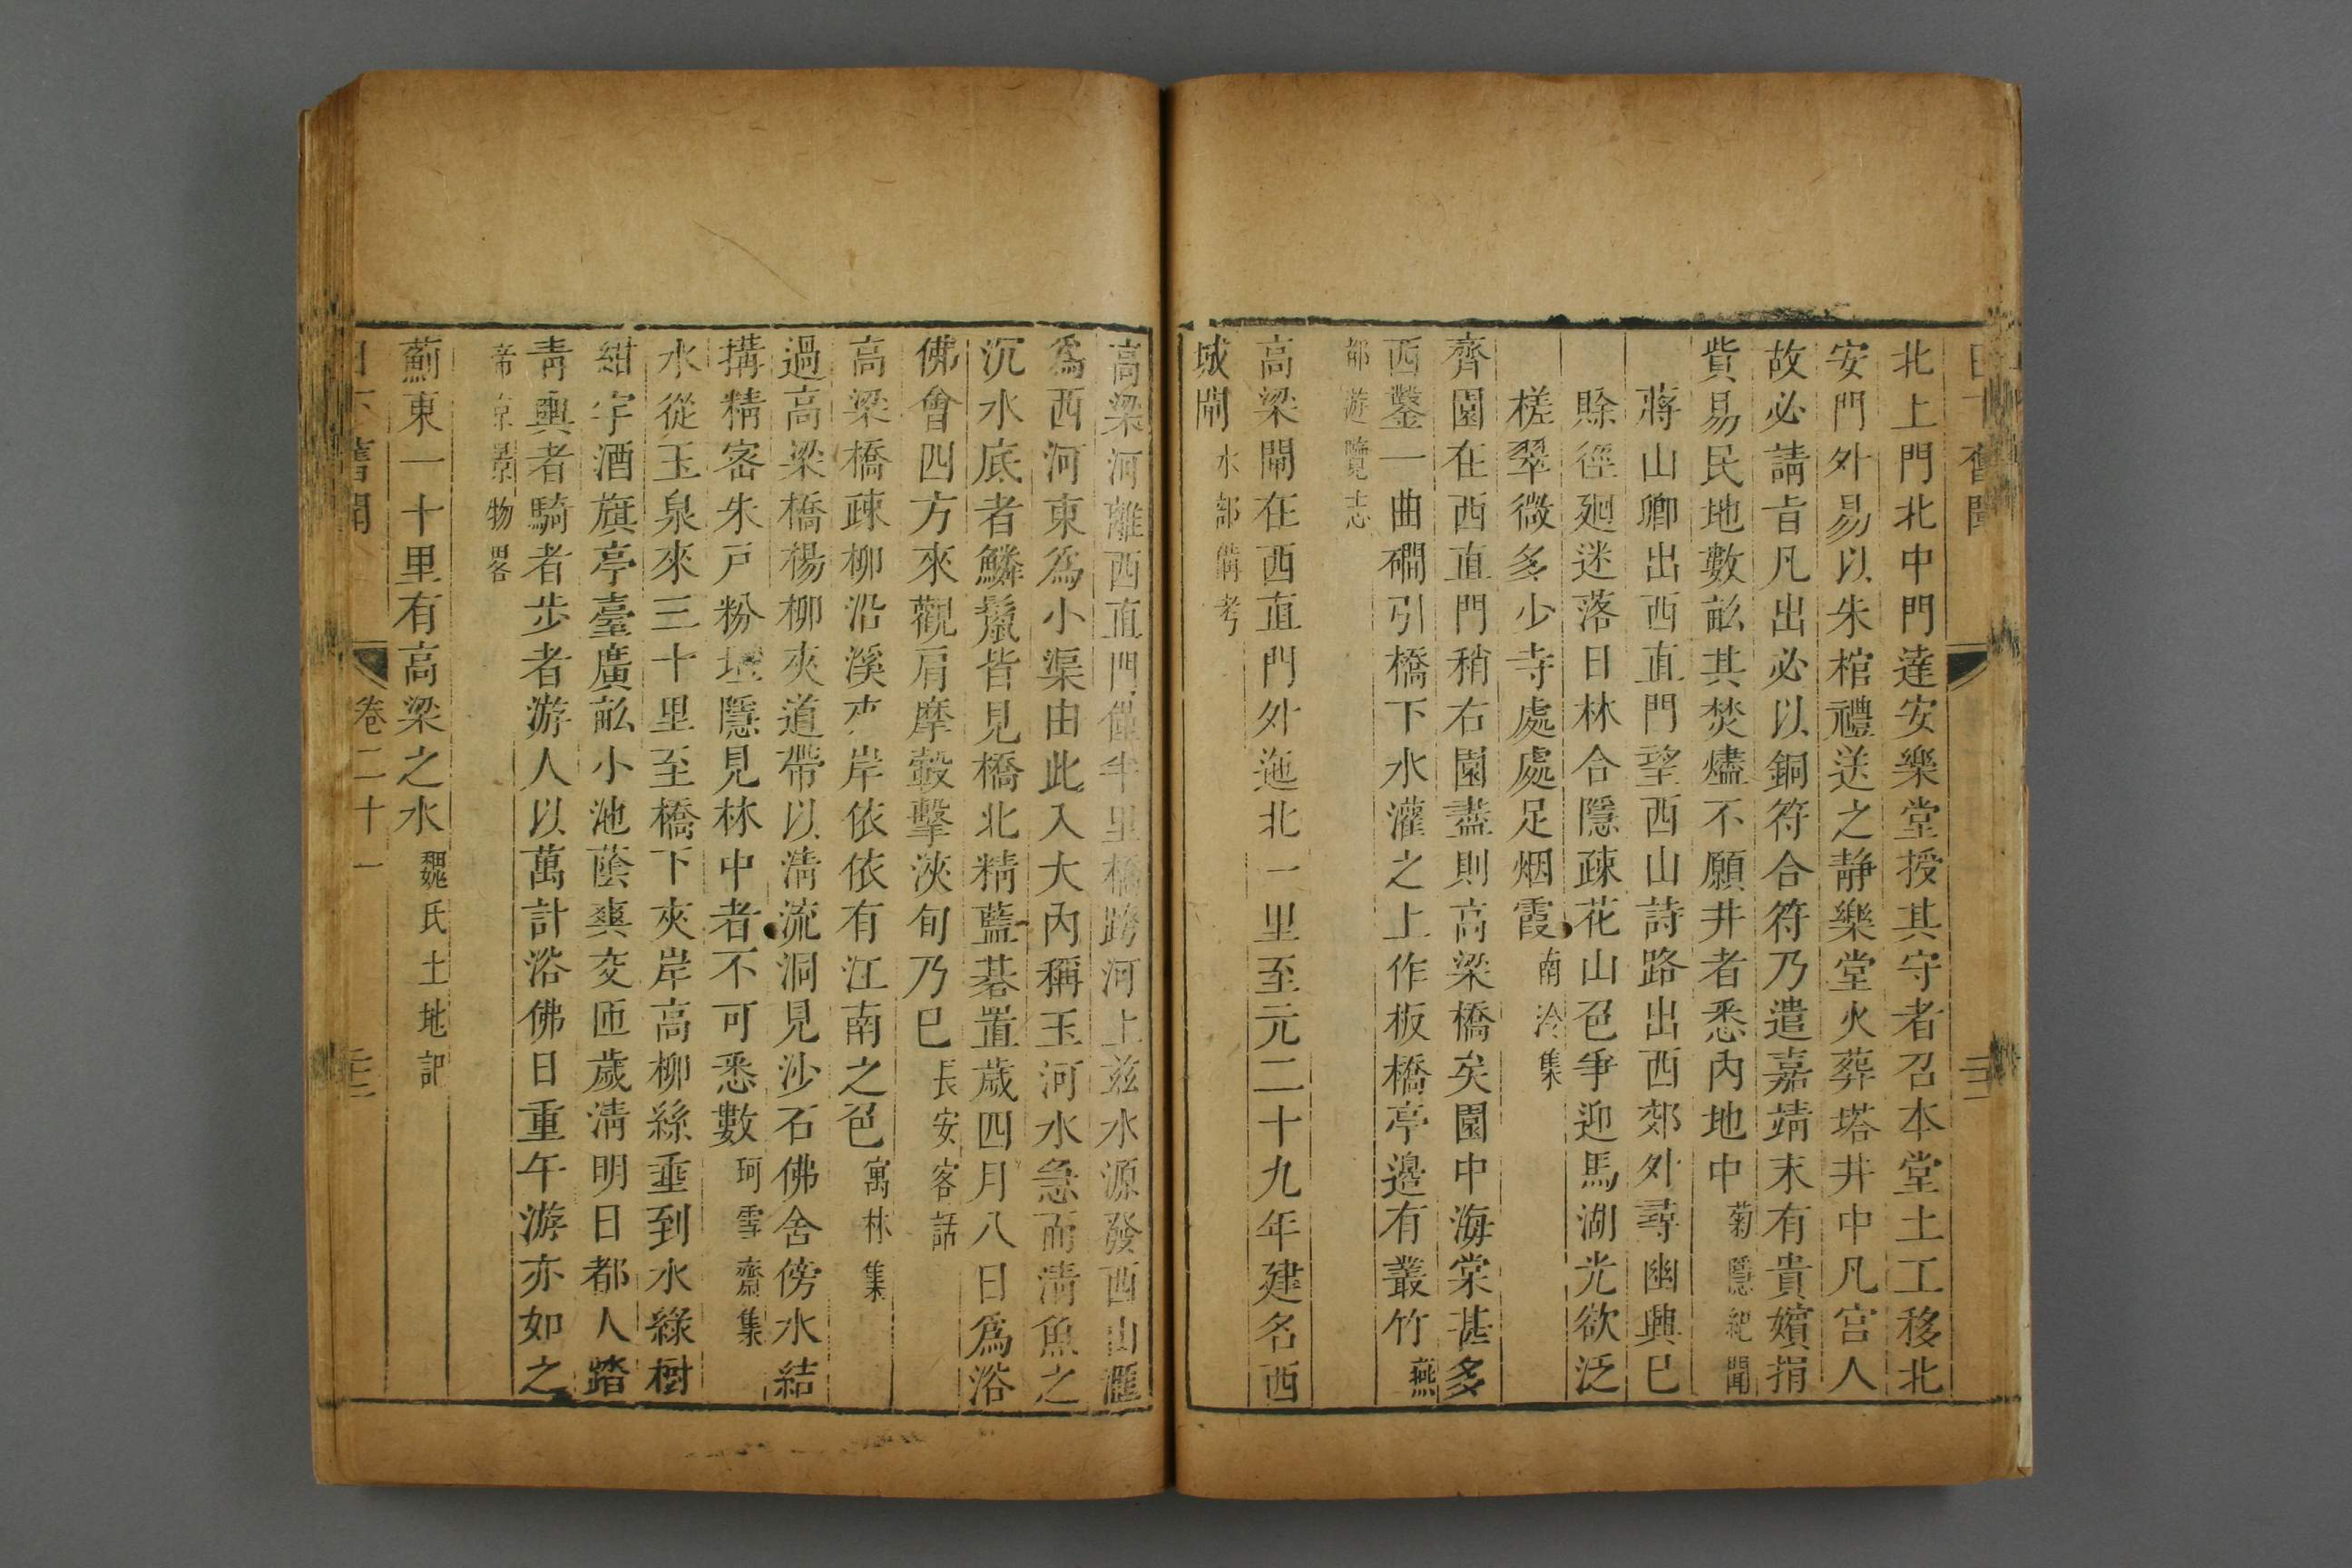 北上門北中門達安樂堂授其守者召本堂土工移北
安門外易以朱棺禮送之静樂堂火葬塔井中凡宫人
故必請旨凡出必以銅符合符乃遣嘉靖末有貴嬪捐
貲易民地數畝其焚燼不願井者悉內地中菊隱紀聞
蔣山卿出西直門望西山詩路出西郊外尋幽興巳
賒徑廻迷落日林合隱疎花山色爭迎馬湖光欲泛
槎翠微多少寺處處足烟霞南泠集
齊園在西直門稍右園盡則高梁橋矣園中海棠甚多
西鑿一曲磵引橋下水灌之上作板橋亭邉有叢竹燕
都游覽志
高梁閘在西直門外迤北一里至元二十九年建名西
城閘水部備考
高梁河離西直門僅半里橋跨河上兹水源發西山滙
爲西河東爲小渠由此入大內稱玉河水急而清魚之
沉水底者鱗鬛皆見橋北精藍棊置歲四月八日爲浴
佛會四方來觀肩摩轂擊浹旬乃巳長安客話
高梁橋疎柳沿溪夾岸依依有江南之色寓林集
過高梁橋楊柳夾道帶以清流洞見沙石佛舍傍水結
搆精密朱戸粉垣隱見林中者不可悉數珂雪齋集
水從玉泉來三十里至橋下夾岸高柳絲垂到水綠樹
紺宇酒旗亭臺廣畝小池蔭爽交匝歲清明日都人踏
青輿者騎者步者游人以萬計浴佛日重午游亦如之
帝京景物畧
薊東一十里有高梁之水魏氏土地記
舊聞 卷二十一